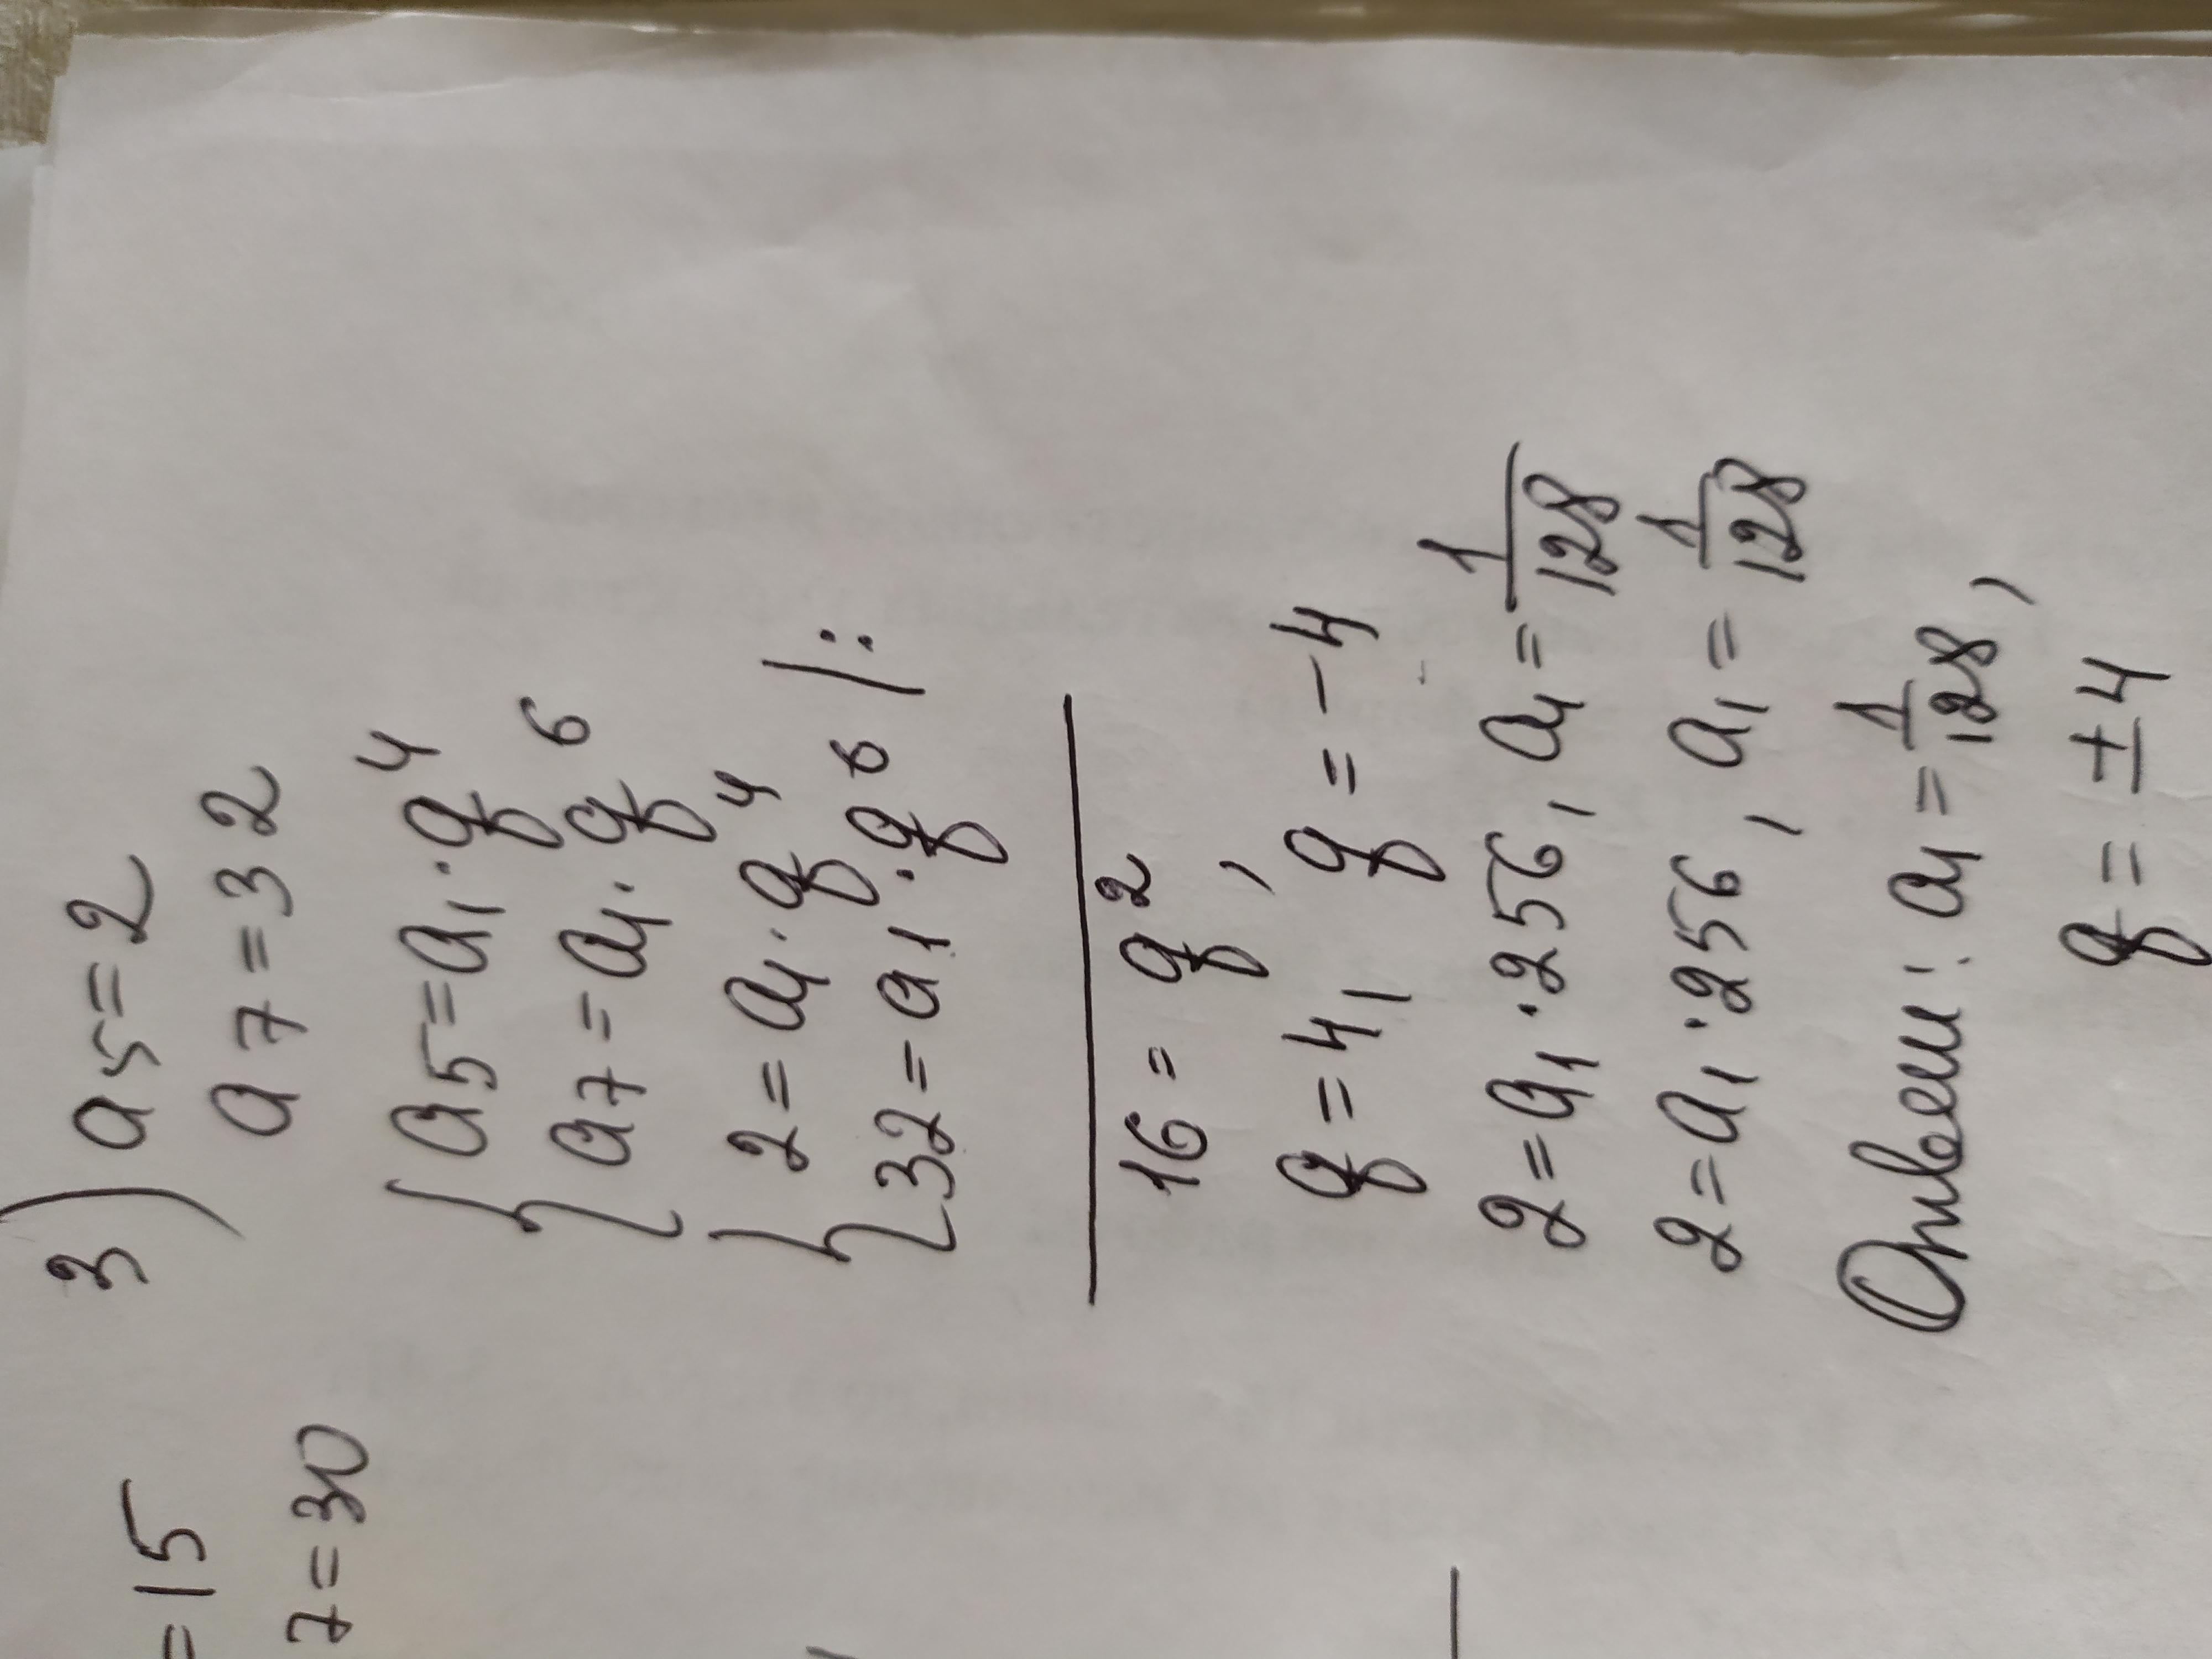 =15
7=30
3) a5=2
a7=32
{a5=a1·q⁴
{a7=a1·q⁶
{2=a1·q⁴
{32=a1·q⁶ |:
16=q²,
q=4, q=-4
2=a1·256, a1=1/128
2=a1·256, a1=1/128
Ответ: a1=1/128,
q=±4